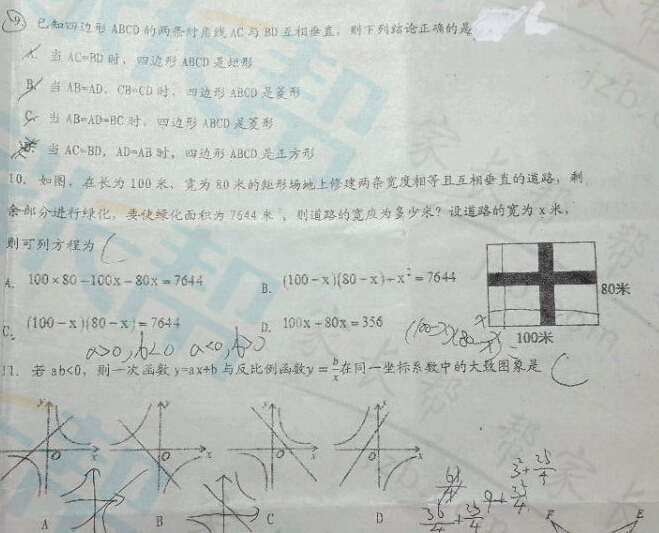 9. 已知四边形 ABCD 的两条对角线 AC 与 BD 互相垂直，则下列结论正确的是
A. 当 AC=BD 时，四边形 ABCD 是矩形
B. 当 AB=AD，CB=CD 时，四边形 ABCD 是菱形
C. 当 AB=AD=BC 时，四边形 ABCD 是菱形
D. 当 AC=BD，AD=AB 时，四边形 ABCD 是正方形
10. 如图，在长为 100 米、宽为 80 米的矩形场地上修建两条宽度相等且互相垂直的道路，剩
余部分进行绿化，要使绿化面积为 7644 米²，则道路的宽应为多少米？设道路的宽为 x 米，
则可列方程为 C
A. 100×80-100x-80x=7644
B. (100-x)(80-x)+x²=7644
80米
C. (100-x)(80-x)=7644
D. 100x+80x=356
(100-x)(80-x)
100米
a>0, b<0 a<0, b>0
11. 若 ab<0，则一次函数 y=ax+b 与反比例函数 y=b/x 在同一坐标系数中的大致图象是 C
y x O y x O y x O y x O
A B C D
F E